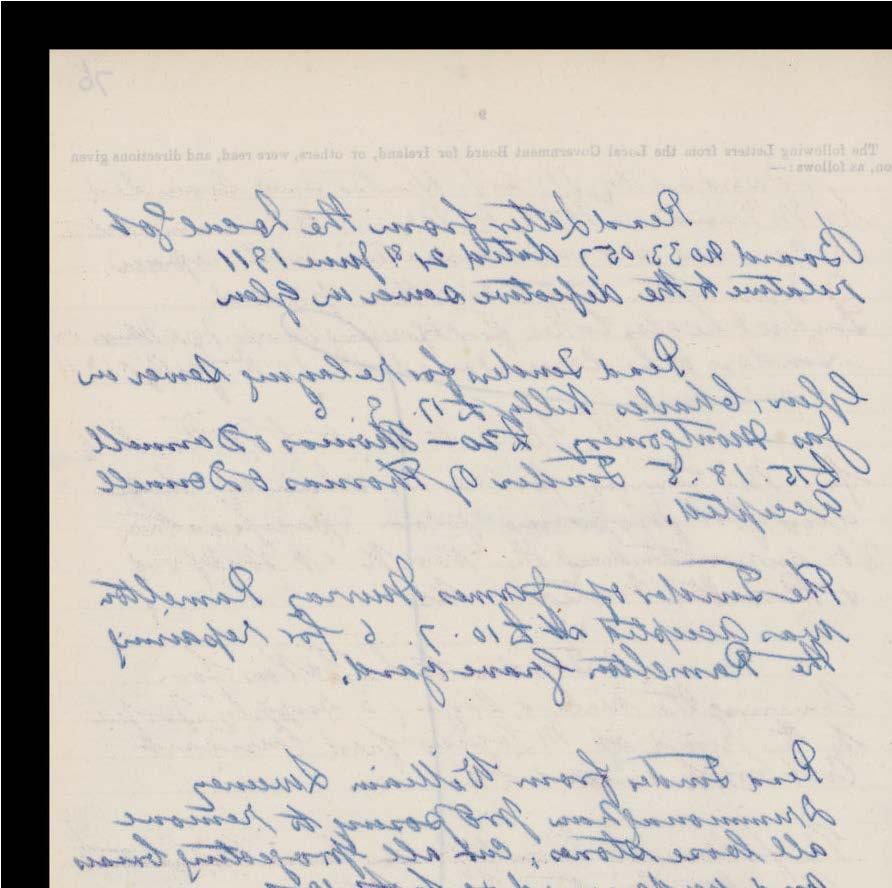 76
9
The following Letters from the Local Government Board for Ireland, or others, were read, and directions given
on, as follows:—
Read Letter from the Local Govt
Board No 33.057 dated 28 June 1911
relative to the defective sewer in Glen
Read Tenders for Relaying Sewer in
Glen, Charles Kelly £17.
Jas Montgomery £20 — Thomas O Donnell
£15. 18. 6 Tender of Thomas O Donnell
accepted.
The Tender of James Murray Ramelton
was accepted at £10. 7. 6 for repairing
the Ramelton Grave yard.
Read Tender from William Sweeney
Drummonghan proposing to remove
all loose stones, cut all projecting